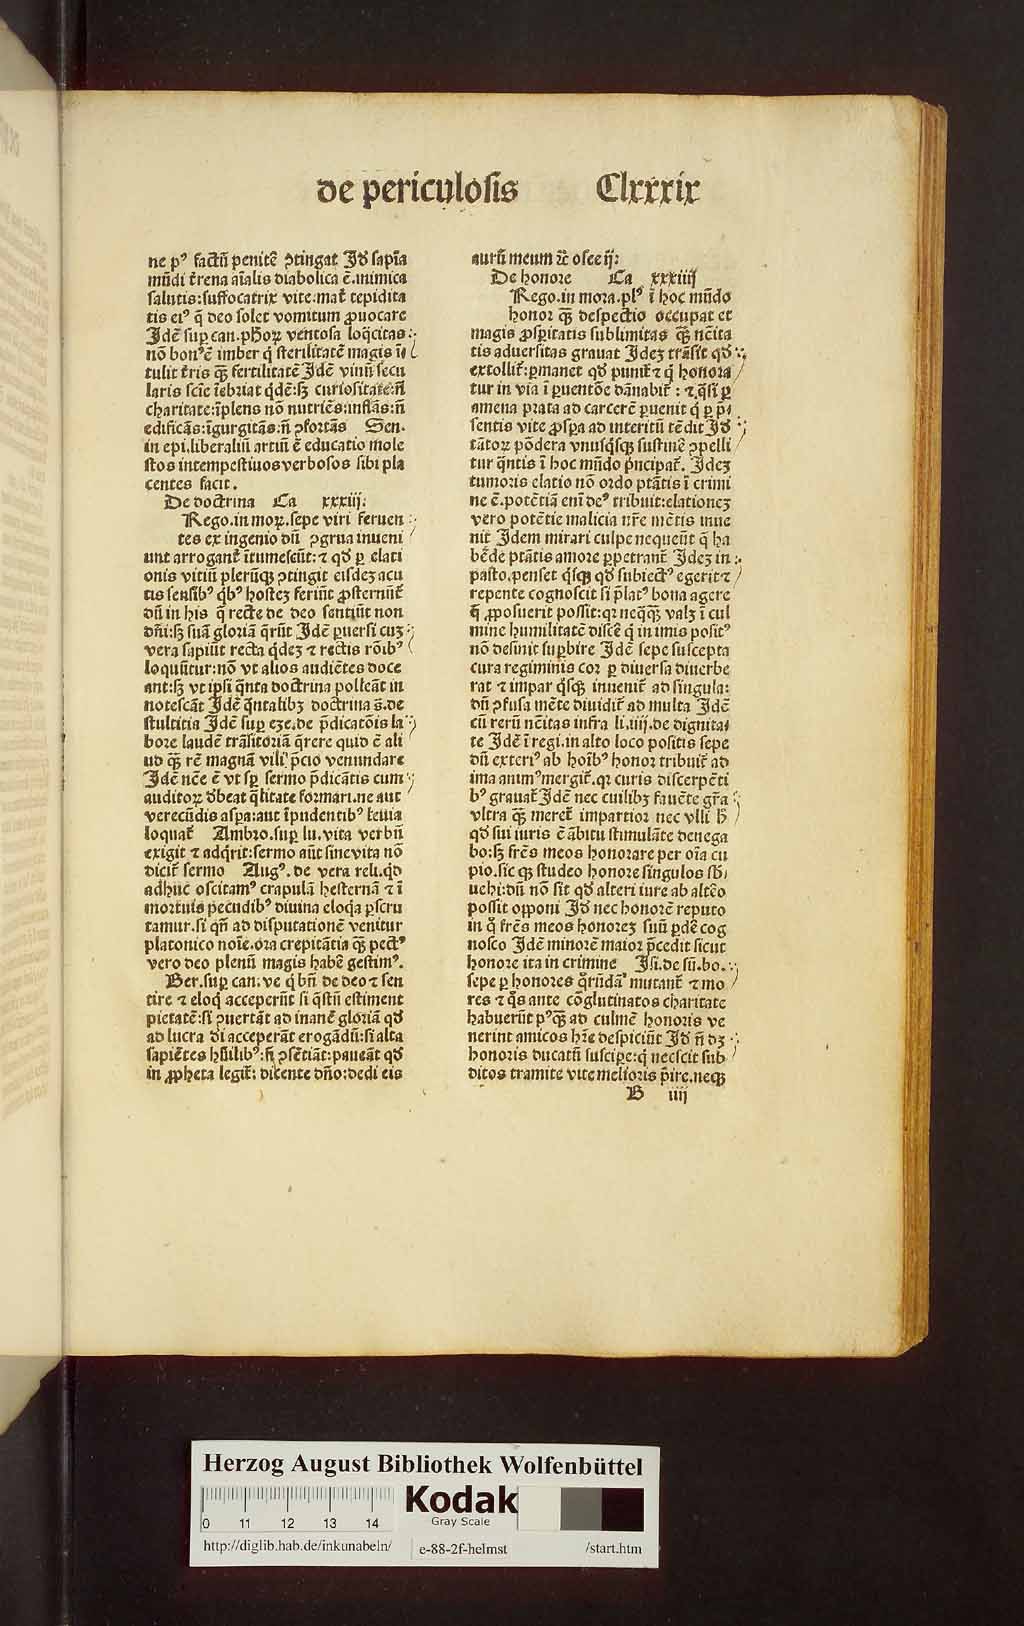 de periculosis Clxxxix
ne pꝰ factū penitē ꝯtingat Jd̄ sapīa
mūdi t̄rena aīalis diabolica ē.inimica
salutis:suffocatrix vite.mat̄ tepidita
tis eiꝰ q̄ deo solet vomitum ꝓuocare
Jdē suꝑ can.ph̄oꝝ ventosa loq̄citas
nō bonꝰ ē imber q̇ sterilitatē magis ī
tulit t̄ris qꝫ fertilitatē Jdē vinū secu
laris scīe īebriat q̇dē:sꝫ curiositate:n̄
charitate:īplens nō nutriēs:inflās:n̄
edificās:īgurgitās:n̄ ꝯfortās Sen.
in epi.liberaliū artiū ē educatio mole
stos intempestiuos verbosos sibi pla
centes facit.
De doctrina Ca xxxiij:
Rego.in moꝝ.sepe viri feruen
tes ex ingenio dū ꝯgrua inueni
unt arrogant̄ ītumescūt:⁊ qd̄ ꝑ elati
onis vitiū plerūqꝫ ꝯtingit eisdeꝫ acu
tis sensibꝰ q̇bꝰ hostes feriūt ꝓsternūt̄
dū in his q̄ recte de deo sentiūt non
dn̄i:sꝫ suā gloriā q̄rūt Jdē ꝑuersi cuꝫ
vera sapiūt recta q̇deꝫ ⁊ rectis rōibꝰ
loquūtur:nō vt alios audiētes doce
ant:sꝫ vt ip̄si q̄nta doctrina polleāt in
notescāt Jdē q̄ntalibꝫ doctrina s̄.de
stultitia Jdē suꝑ eze.de p̄dicatōis la
bore laudē trāsitoriā q̄rere quid ē ali
ud qꝫ rē magnā vili p̄cio venundare
Jdē nēe ē vt sꝑ sermo p̄dicātis cum
auditoꝝ d̄beat q̄litate formari.ne aut
verecūdis aspa:aut īpudentibꝰ leuia
loquat̄ Ambro.suꝑ lu.vita verbū
exigit ⁊ adq̇rit:sermo aūt sine vita nō
dicit̄ sermo Augꝰ.de vera reli.qd̄
adhuc oscitamꝰ crapulā hesternā ⁊ ī
mortuis pecudibꝰ divina eloq̄a ꝑscru
tamur.si qn̄ ad disputationē venitur
platonico noīe.ora crepitātia qꝫ pectꝰ
vero deo plenū magis habē gestimꝰ.
Ber.suꝑ can:ve q̇ bn̄ de deo ⁊ sen
tire ⁊ eloq̇ acceperūt si q̄stū estiment
pietatē:si ꝯuertāt ad inanē gloriā qd̄
ad lucra di acceperāt erogādū:si alta
sapiētes hūilibꝰ:n̄ ꝯsētiāt:paueāt qd̄
in ꝓpheta legit̄: dicente dn̄o:dedi eis
aurū meum ⁊c̄ osee ij:
De honore Ca xxxiiij
Rego.in mora.plꝰ ī hoc mūdo
honor qꝫ despectio occupat et
magis ꝓsꝑitatis sublimitas qꝫ nēita
tis adversitas grauat Jdeꝫ trāsit qd̄
extollit̄:ꝑmanet qd̄ punit̄ ⁊ q̇ honora
tur in via ī ꝑuentōe dānabit̄ : ⁊.q̄si ꝑ
amena prata ad carcerē ꝑuenit q̇ ꝑ p̄
sentis vite ꝓsꝑa ad interitū tēdit Jd̄
tātoꝝ pōdera vnusq̇sqꝫ sustinē ꝯpelli
tur q̄ntis ī hoc mūdo p̄ncipat̄. Jdeꝫ
tumoris elatio nō ordo ptātis ī crimi
ne ē.potētiā enī deꝰ tribuit:elationeꝫ
vero potētie malicia nr̄e mētis inue
nit Jdem mirari culpe nequeūt q̇ ha
bē de ptātis amore ꝑpetrant̄ Jdeꝫ in
pasto.penset q̇sqꝫ qd̄ subiectꝰ egerit ⁊
repente cognoscit si p̄latꝰ bona agere
q̄ ꝓposuerit possit:qꝛ neqꝫqꝫ valꝫ ī cul
mine humilitatē discē q̇ in imis positꝰ
nō desinit suꝑbire Jdē sepe suscepta
cura regiminis cor ꝑ diuersa diuerbe
rat ⁊ impar q̇sqꝫ inuenit̄ ad singula:
dū ꝯfusa mēte diuidit̄ ad multa Jdē
cū rerū nēitas infra li.iiij.de dignita
te Jdē ī regi.in alto loco positis sepe
dū exteriꝰ ab hoībꝰ honor tribuit̄ ad
ima animꝰ mergit̄.qꝛ curis discerpēti
bꝰ grauat̄ Jdē nec cuilibꝫ fauēte gr̄a
vltra qꝫ meret̄ impartior nec vlli h̄
qd̄ sui iuris ē ābitu stimulāte denega
bo:sꝫ frēs meos honorare per oīa cu
pio.sic qꝫ studeo honore singulos sb̄
uehi:dū nō sit qd̄ alteri iure ab altēo
possit opponi Jd̄ nec honorē reputo
in q̇ frēs meos honoreꝫ suū ꝑdē cog
nosco Jdē minorē maior p̄cedit sicut
honore ita in crimine Jsi.de sū.bo.
sepe ꝑ honores q̄rūdā mutant̄ ⁊ mo
res ⁊ q̇s ante cōglutinatos charitate
habuerūt pꝰqꝫ ad culmē honoris ve
nerint amicos hr̄e despiciūt Jd̄ n̄ dꝫ
honoris ducatū suscipe:q̇ nescit sub
ditos tramite vite melioris p̄ire.neqꝫ
B iiij
Herzog August Bibliothek Wolfenbüttel
0 11 12 13 14
Kodak
Gray Scale
http://diglib.hab.de/inkunabeln/ e-88-2f-helmst /start.htm